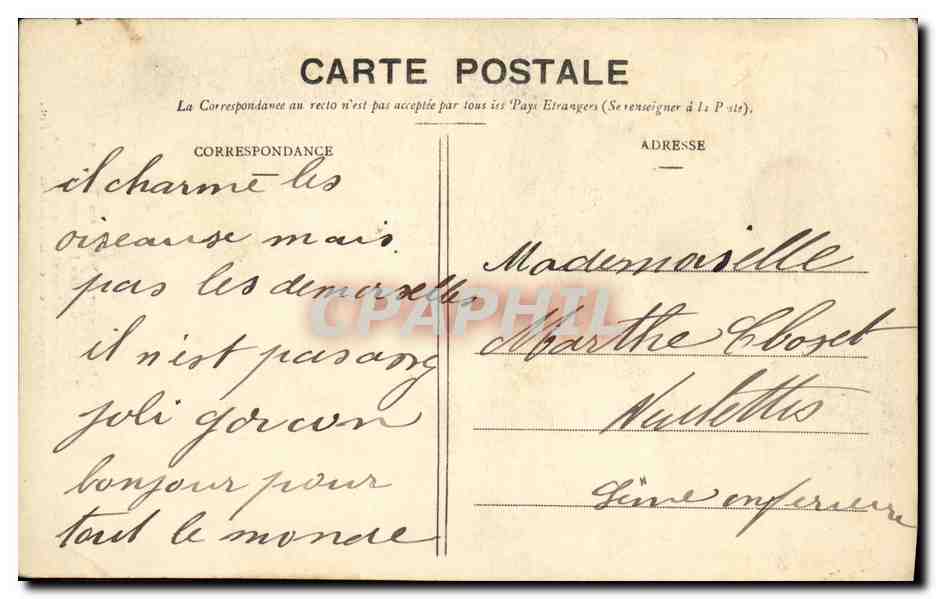 CARTE POSTALE
La Correspondance au recto n'est pas acceptée par tous les Pays Etrangers (Se renseigner à la Poste).
CORRESPONDANCE
il charme les
oiseause mais
pas les demoiselles
il n'est pas assez
joli garcon
bonjour pour
tout le monde
ADRESSE
Mademoiselle
Marthe Closet
Veulettes
Seine inferieure
CPAPHIL